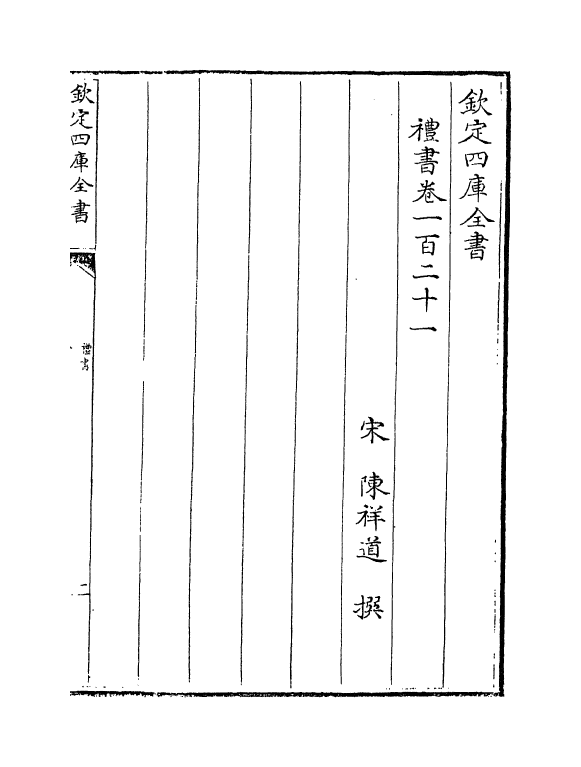 欽定四庫全書
禮書卷一百二十一
宋 陳祥道 撰
欽定四庫全書
禮書
二